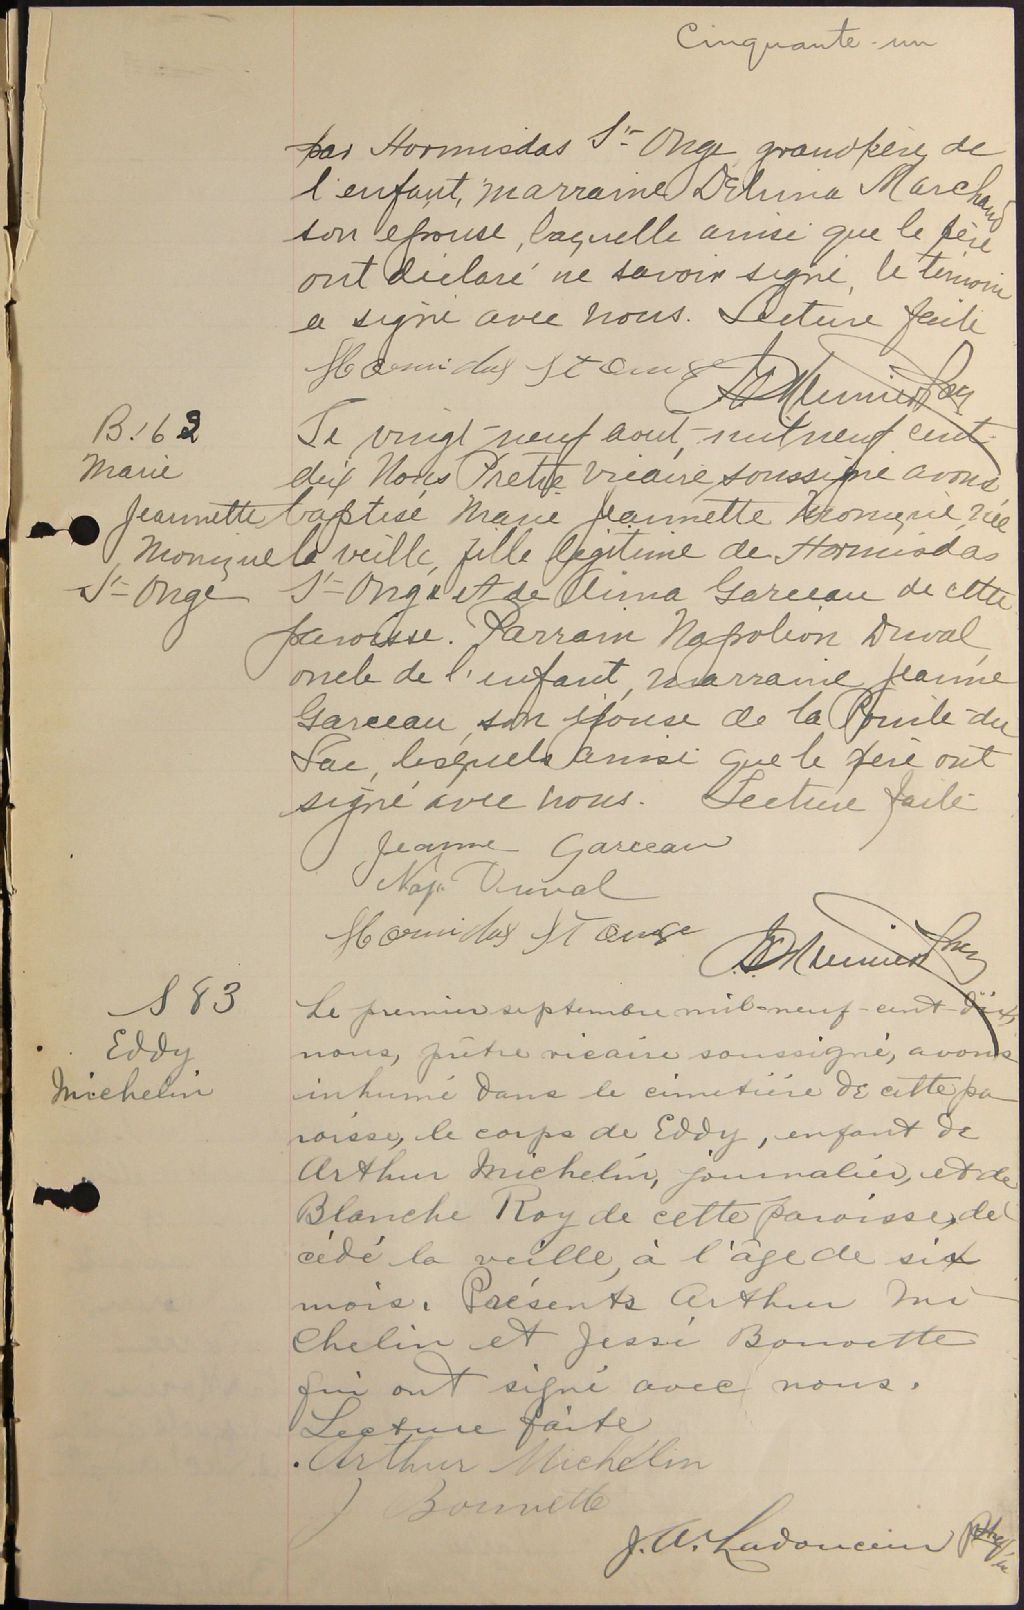 Cinquante-un
par Hormisdas St-Onge, grandpère de
l'enfant, marraine Délima Marchand
son épouse, laquelle ainsi que le père
ont déclaré ne savoir signé, le témoin
a signé avec nous. Lecture faite
Hormidas St Onge
B. 162
Marie
Jeannette
Monique
St-Onge
Le vingt-neuf aout, mil neuf cent
dix Nous Prêtre Vicaire soussigné avons
baptisé Marie Jeannette Monique née
la veille, fille légitime de Hormisdas
St-Onge et de Alima Garceau de cette
paroisse. Parrain Napoléon Duval,
oncle de l'enfant, marraine Jeanne
Garceau, son épouse de la Pointe-du
Lac, lesquels ainsi que le père ont
signé avec nous. Lecture faite
Jeanne Garceau
Nap. Duval
Hormidas St Onge
S 83
Eddy
Michelin
Le premier septembre mil-neuf-cent-dix
nous, prêtre vicaire soussigné, avons
inhumé dans le cimetière de cette pa
roisse, le corps de Eddy, enfant de
Arthur Michelin, journalier, et de
Blanche Roy de cette paroisse, dé
cédé la veille, à l'âge de six
mois. Présents Arthur Mi-
chelin et Jessé Bonvette
qui ont signé avec nous.
Lecture faite
Arthur Michelin
J Bonvette
J. A. Ladouceur Ptre